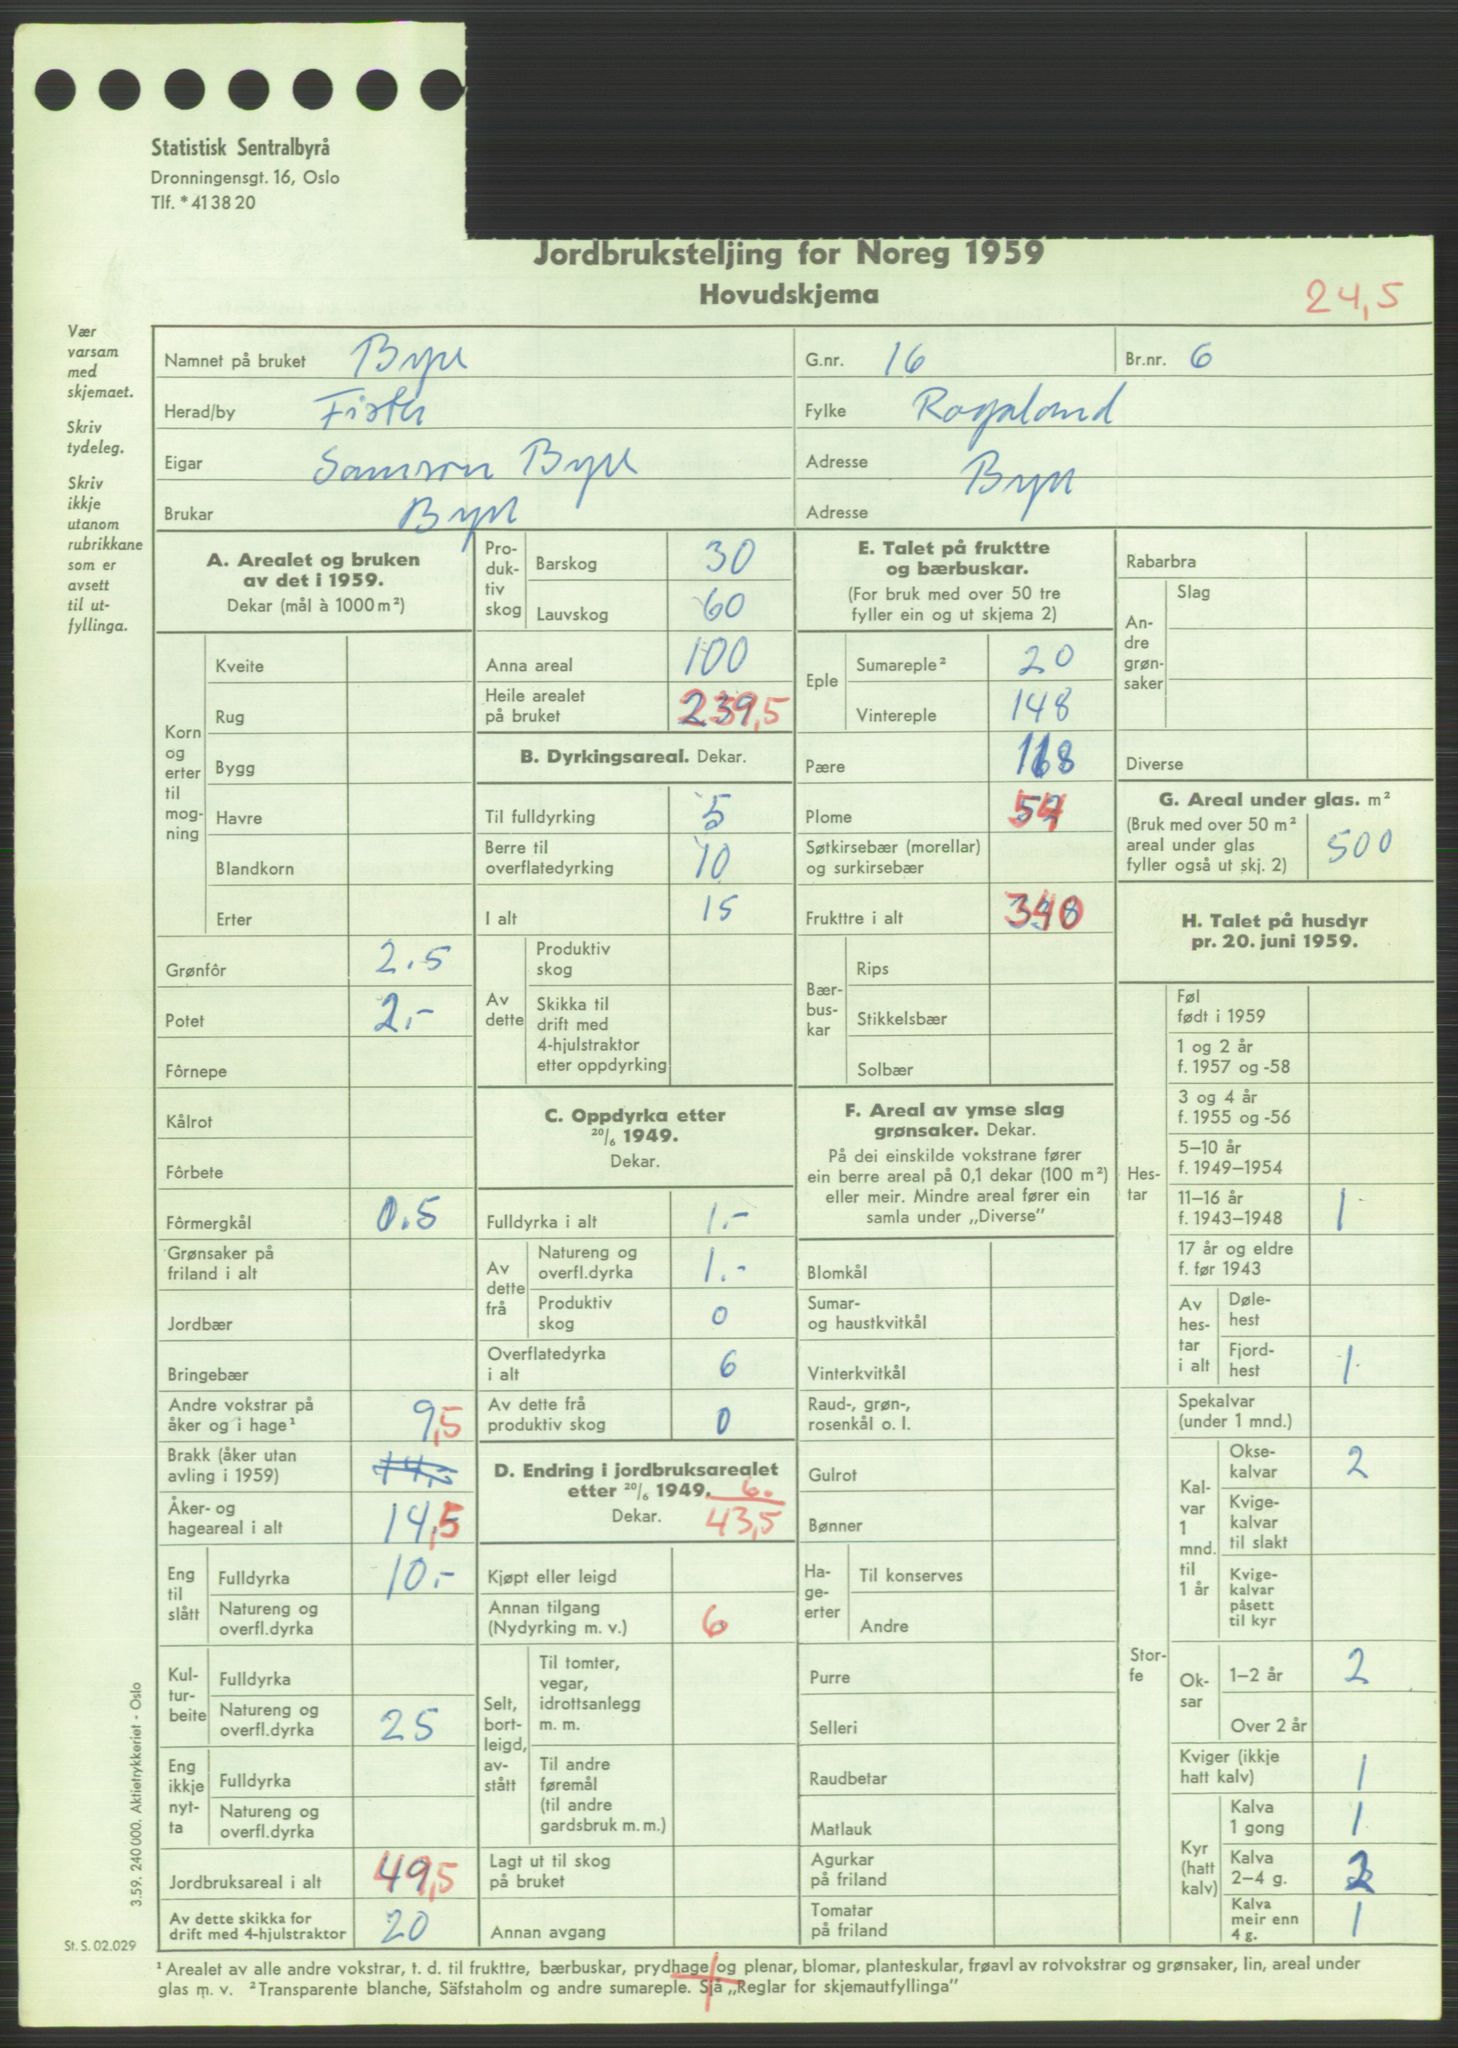 Statistisk Sentralbyrå
Dronningensgt. 16, Oslo
Tlf. * 41 38 20
Jordbruksteljing for Noreg 1959
Hovudskjema
24,5
Vær
varsam
med
skjemaet.
Skriv
tydeleg.
Skriv
ikkje
utanom
rubrikkane
som er
avsett
til ut-
fyllinga.
Namnet på bruket
G.nr. 16
Br.nr. 6
Herad/by Fister
Fylke Rogaland
Eigar Samson
Adresse
Brukar
Adresse
A. Arealet og bruken
av det i 1959.
Dekar (mål à 1000 m²)
Korn
og
erter
til
mog-
ning
Kveite
Rug
Bygg
Havre
Blandkorn
Erter
Grønfôr 2.5
Potet 2.-
Fôrnepe
Kålrot
Fôrbete
Fôrmergkål 0.5
Grønsaker på
friland i alt
Jordbær
Bringebær
Andre vokstrar på
åker og i hage¹ 9,5
Brakk (åker utan
avling i 1959)
Åker- og
hageareal i alt 14,5
Eng
til
slått
Fulldyrka 10.-
Natureng og
overfl.dyrka
Kul-
tur-
beite
Fulldyrka
Natureng og
overfl.dyrka 25
Eng
ikkje
nyt-
ta
Fulldyrka
Natureng og
overfl.dyrka
Jordbruksareal i alt 49,5
Av dette skikka for
drift med 4-hjulstraktor 20
Pro-
duk-
tiv
skog
Barskog 30
Lauvskog 60
Anna areal 100
Heile arealet
på bruket 239,5
B. Dyrkingsareal. Dekar.
Til fulldyrking 5
Berre til
overflatedyrking 10
I alt 15
Av
dette
Produktiv
skog
Skikka til
drift med
4-hjulstraktor
etter oppdyrking
C. Oppdyrka etter
20/6 1949.
Dekar.
Fulldyrka i alt 1.-
Av
dette
frå
Natureng og
overfl.dyrka 1.-
Produktiv
skog 0
Overflatedyrka
i alt 6
Av dette frå
produktiv skog 0
D. Endring i jordbruksarealet
etter 20/6 1949. 6.
Dekar. 43,5
Kjøpt eller leigd
Annan tilgang
(Nydyrking m. v.) 6
Selt,
bort-
leigd,
av-
stått
Til tomter,
vegar,
idrottsanlegg
m. m.
Til andre
føremål
(til andre
gardsbruk m. m.)
Lagt ut til skog
på bruket
Annan avgang
E. Talet på frukttre
og bærbuskar.
(For bruk med over 50 tre
fyller ein og ut skjema 2)
Eple
Sumareple² 20
Vintereple 148
Pære 118
Plome 54
Søtkirsebær (morellar)
og surkirsebær
Frukttre i alt 340
Bær-
bus-
kar
Rips
Stikkelsbær
Solbær
F. Areal av ymse slag
grønsaker. Dekar.
På dei einskilde vokstrane fører
ein berre areal på 0,1 dekar (100 m²)
eller meir. Mindre areal fører ein
samla under „Diverse”
Blomkål
Sumar-
og haustkvitkål
Vinterkvitkål
Raud-, grøn-,
rosenkål o. l.
Gulrot
Bønner
Ha-
ge-
erter
Til konserves
Andre
Purre
Selleri
Raudbetar
Matlauk
Agurkar
på friland
Tomatar
på friland
Rabarbra
An-
dre
grøn-
saker
Slag
Diverse
G. Areal under glas. m²
(Bruk med over 50 m²
areal under glas
fyller også ut skj. 2) 500
H. Talet på husdyr
pr. 20. juni 1959.
Hes-
tar
Føl
født i 1959
1 og 2 år
f. 1957 og -58
3 og 4 år
f. 1955 og -56
5–10 år
f. 1949–1954
11–16 år
f. 1943–1948 1
17 år og eldre
f. før 1943
Av
hes-
tar
i alt
Døle-
hest
Fjord-
hest 1
Stor-
fe
Spekalvar
(under 1 mnd.)
Kal-
var
1
mnd.
til
1 år
Okse-
kalvar 2
Kvige-
kalvar
til slakt
Kvige-
kalvar
påsett
til kyr
Ok-
sar
1–2 år 2
Over 2 år
Kviger (ikkje
hatt kalv) 1
Kyr
(hatt
kalv)
Kalva
1 gong 1
Kalva
2–4 g. 2
Kalva
meir enn
4 g. 1
3.59. 240 000. Aktietrykkeriet - Oslo
St. S. 02.029
¹ Arealet av alle andre vokstrar, t. d. til frukttre, bærbuskar, prydhage og plenar, blomar, planteskular, frøavl av rotvokstrar og grønsaker, lin, areal under
glas m. v. ² Transparente blanche, Säfstaholm og andre sumareple. Sjå „Reglar for skjemautfyllinga”